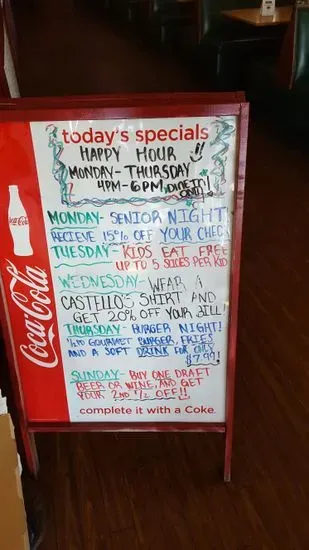 today's specials
HAPPY HOUR
MONDAY-THURSDAY
4PM-6PM, DINE IN
ONLY!
MONDAY- SENIOR NIGHT
RECIEVE 15% OFF YOUR CHECK
TUESDAY- KIDS EAT FREE
UP TO 5 SLICES PER KID
WEDNESDAY- WEAR A
CASTELLO'S SHIRT AND
GET 20% OFF YOUR BILL!
THURSDAY- BURGER NIGHT!
GOURMET BURGER, FRIES
AND A SOFT DRINK FOR ONLY
$7.99!
SUNDAY- BUY ONE DRAFT
BEER OR WINE, AND GET
YOUR 2ND 1/2 OFF!!
complete it with a Coke
Coca-Cola
Coca-Cola